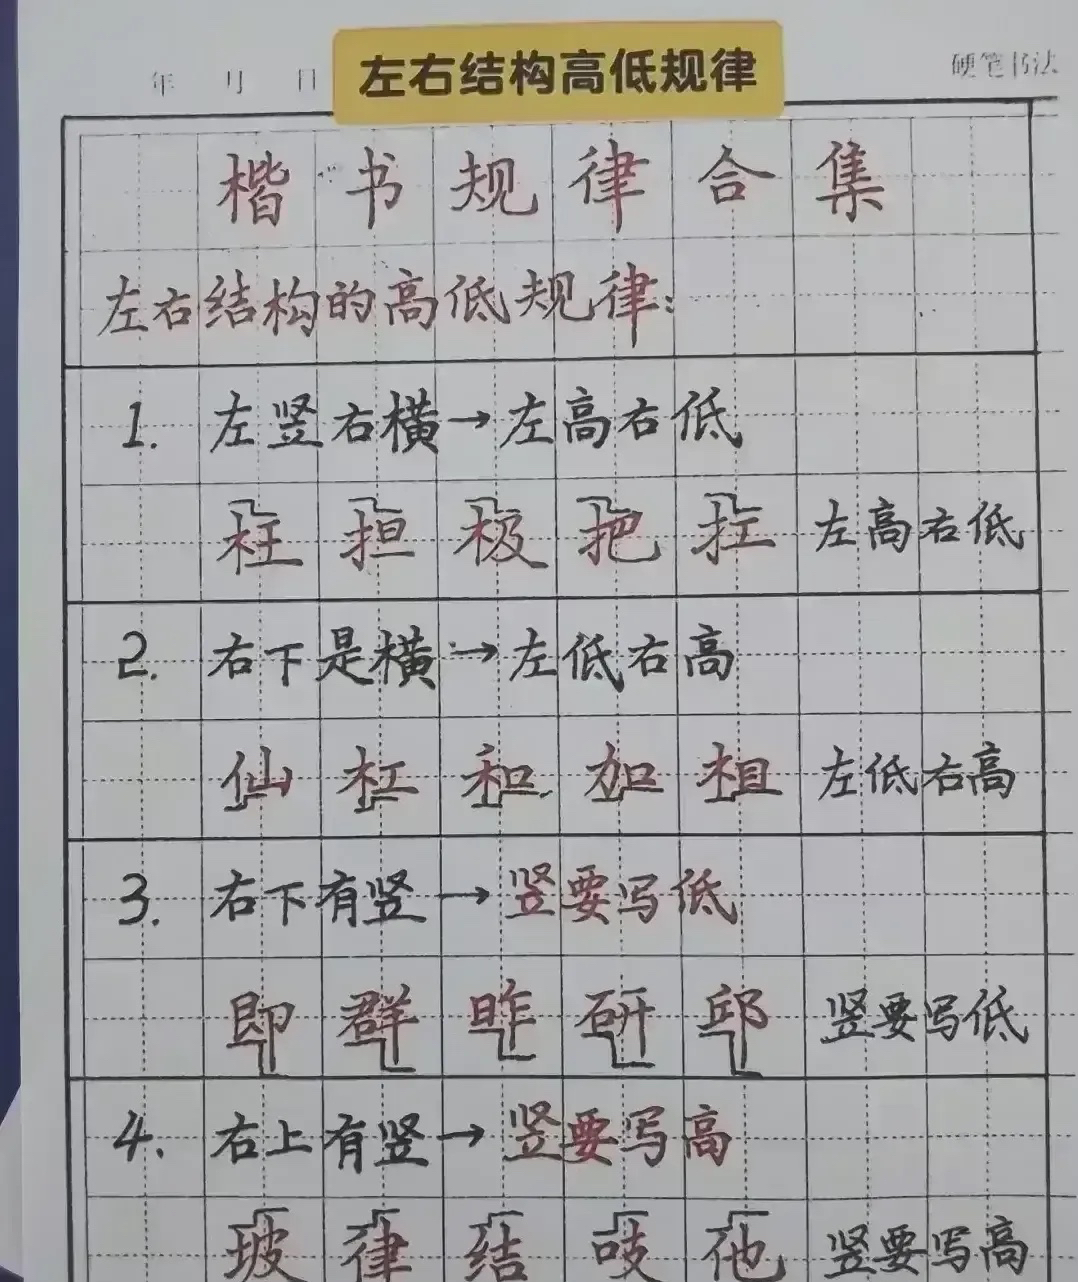 左右结构高低规律
年 月 日
硬笔书法
楷书规律合集
左右结构的高低规律:
1. 左竖右横→左高右低
枉 担 极 把 扛 左高右低
2. 右下是横→左低右高
仙 杠 和 加 相 左低右高
3. 右下有竖→竖要写低
即 群 昨 研 邱 竖要写低
4. 右上有竖→竖要写高
坡 律 结 吱 他 竖要写高